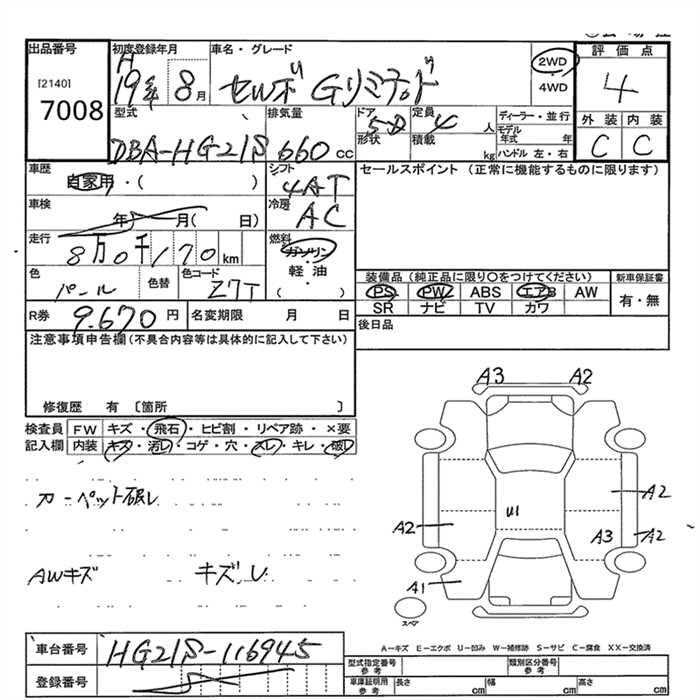 出品番号
[2140]
7008
初度登録年月
H
19年 8月
車名・グレード
セルボ Gリミテッド
2WD
4WD
評価点
4
外装 内装
C C
型式
DBA-HG21S
排気量
660 cc
ドア
5D
形状
定員
4 人
積載
kg
ディーラー・並行
モデル年式 年
ハンドル 左・右
車歴
自家用・( )
シフト
4AT
セールスポイント (正常に機能するものに限ります)
車検
年 月( 日)
冷房
AC
走行
8万0千170km
燃料
ガソリン
軽油
・
( )
色
パール
色替
色コード
Z7T
装備品 (純正品に限り○をつけてください)
PS PW ABS エアB AW
SR ナビ TV カワ
新車保証書
有・無
R券
9.670 円
名変期限 月 日
後日品
注意事項申告欄 (不具合内容等は具体的に記入して下さい)
修復歴 有 〔箇所 〕
検査員 FW キズ・飛石・ヒビ割・リペア跡・×要
記入欄 内装 キズ・汚レ・コゲ・穴・スレ・キレ・破レ
カーペット破レ
AWキズ キズレ
A3 A2
A2
U1
A2
A3 A2
A1
スペア
A-キズ E-エクボ U-凹み W-補修跡 S-サビ C-腐食 XX-交換済
車台番号
HG21S-116945
登録番号
型式指定番号
参考
類別区分番号
参考
車庫証明用
参考
長さ cm 幅 cm 高さ cm